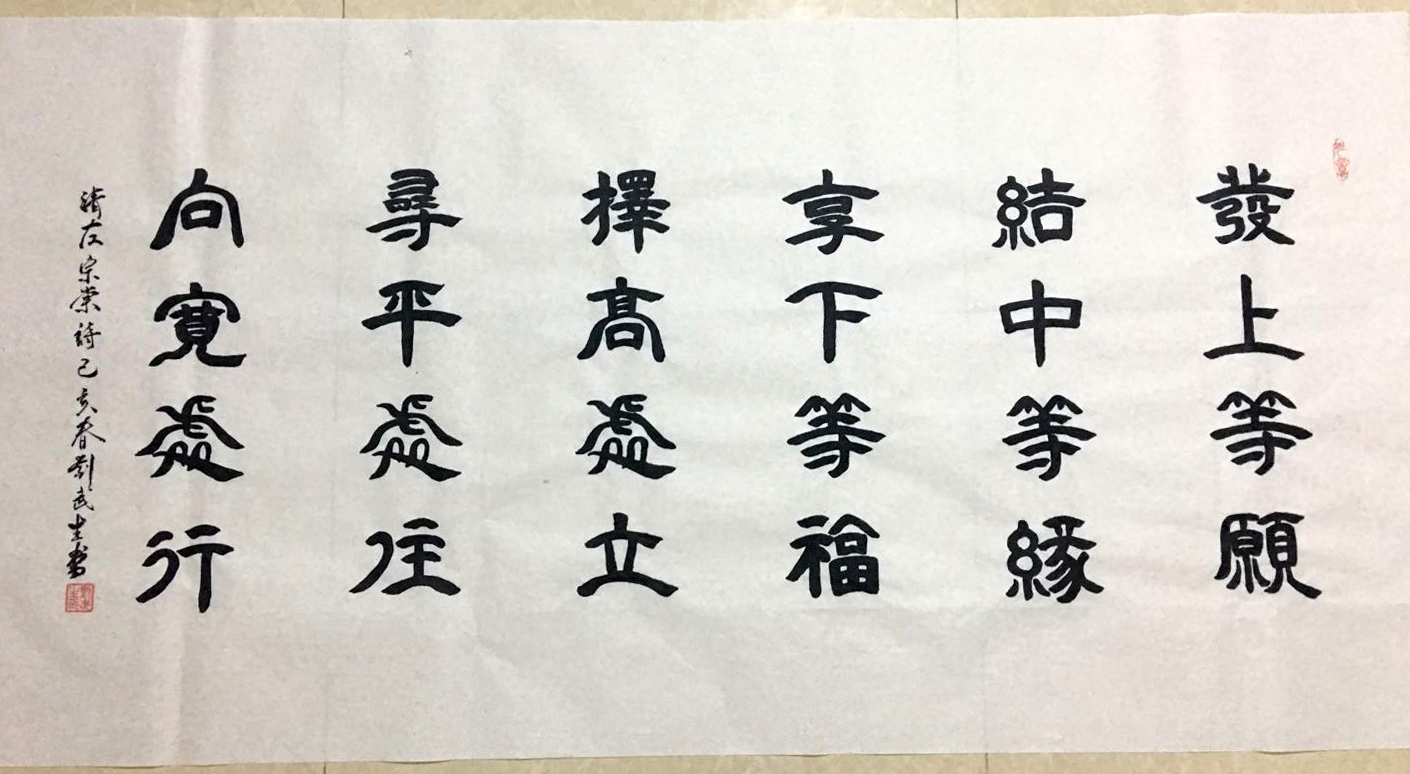 發上等願
結中等緣
享下等福
擇髙處立
尋平處住
向寬處行
清左宗棠詩己亥春劉武生書